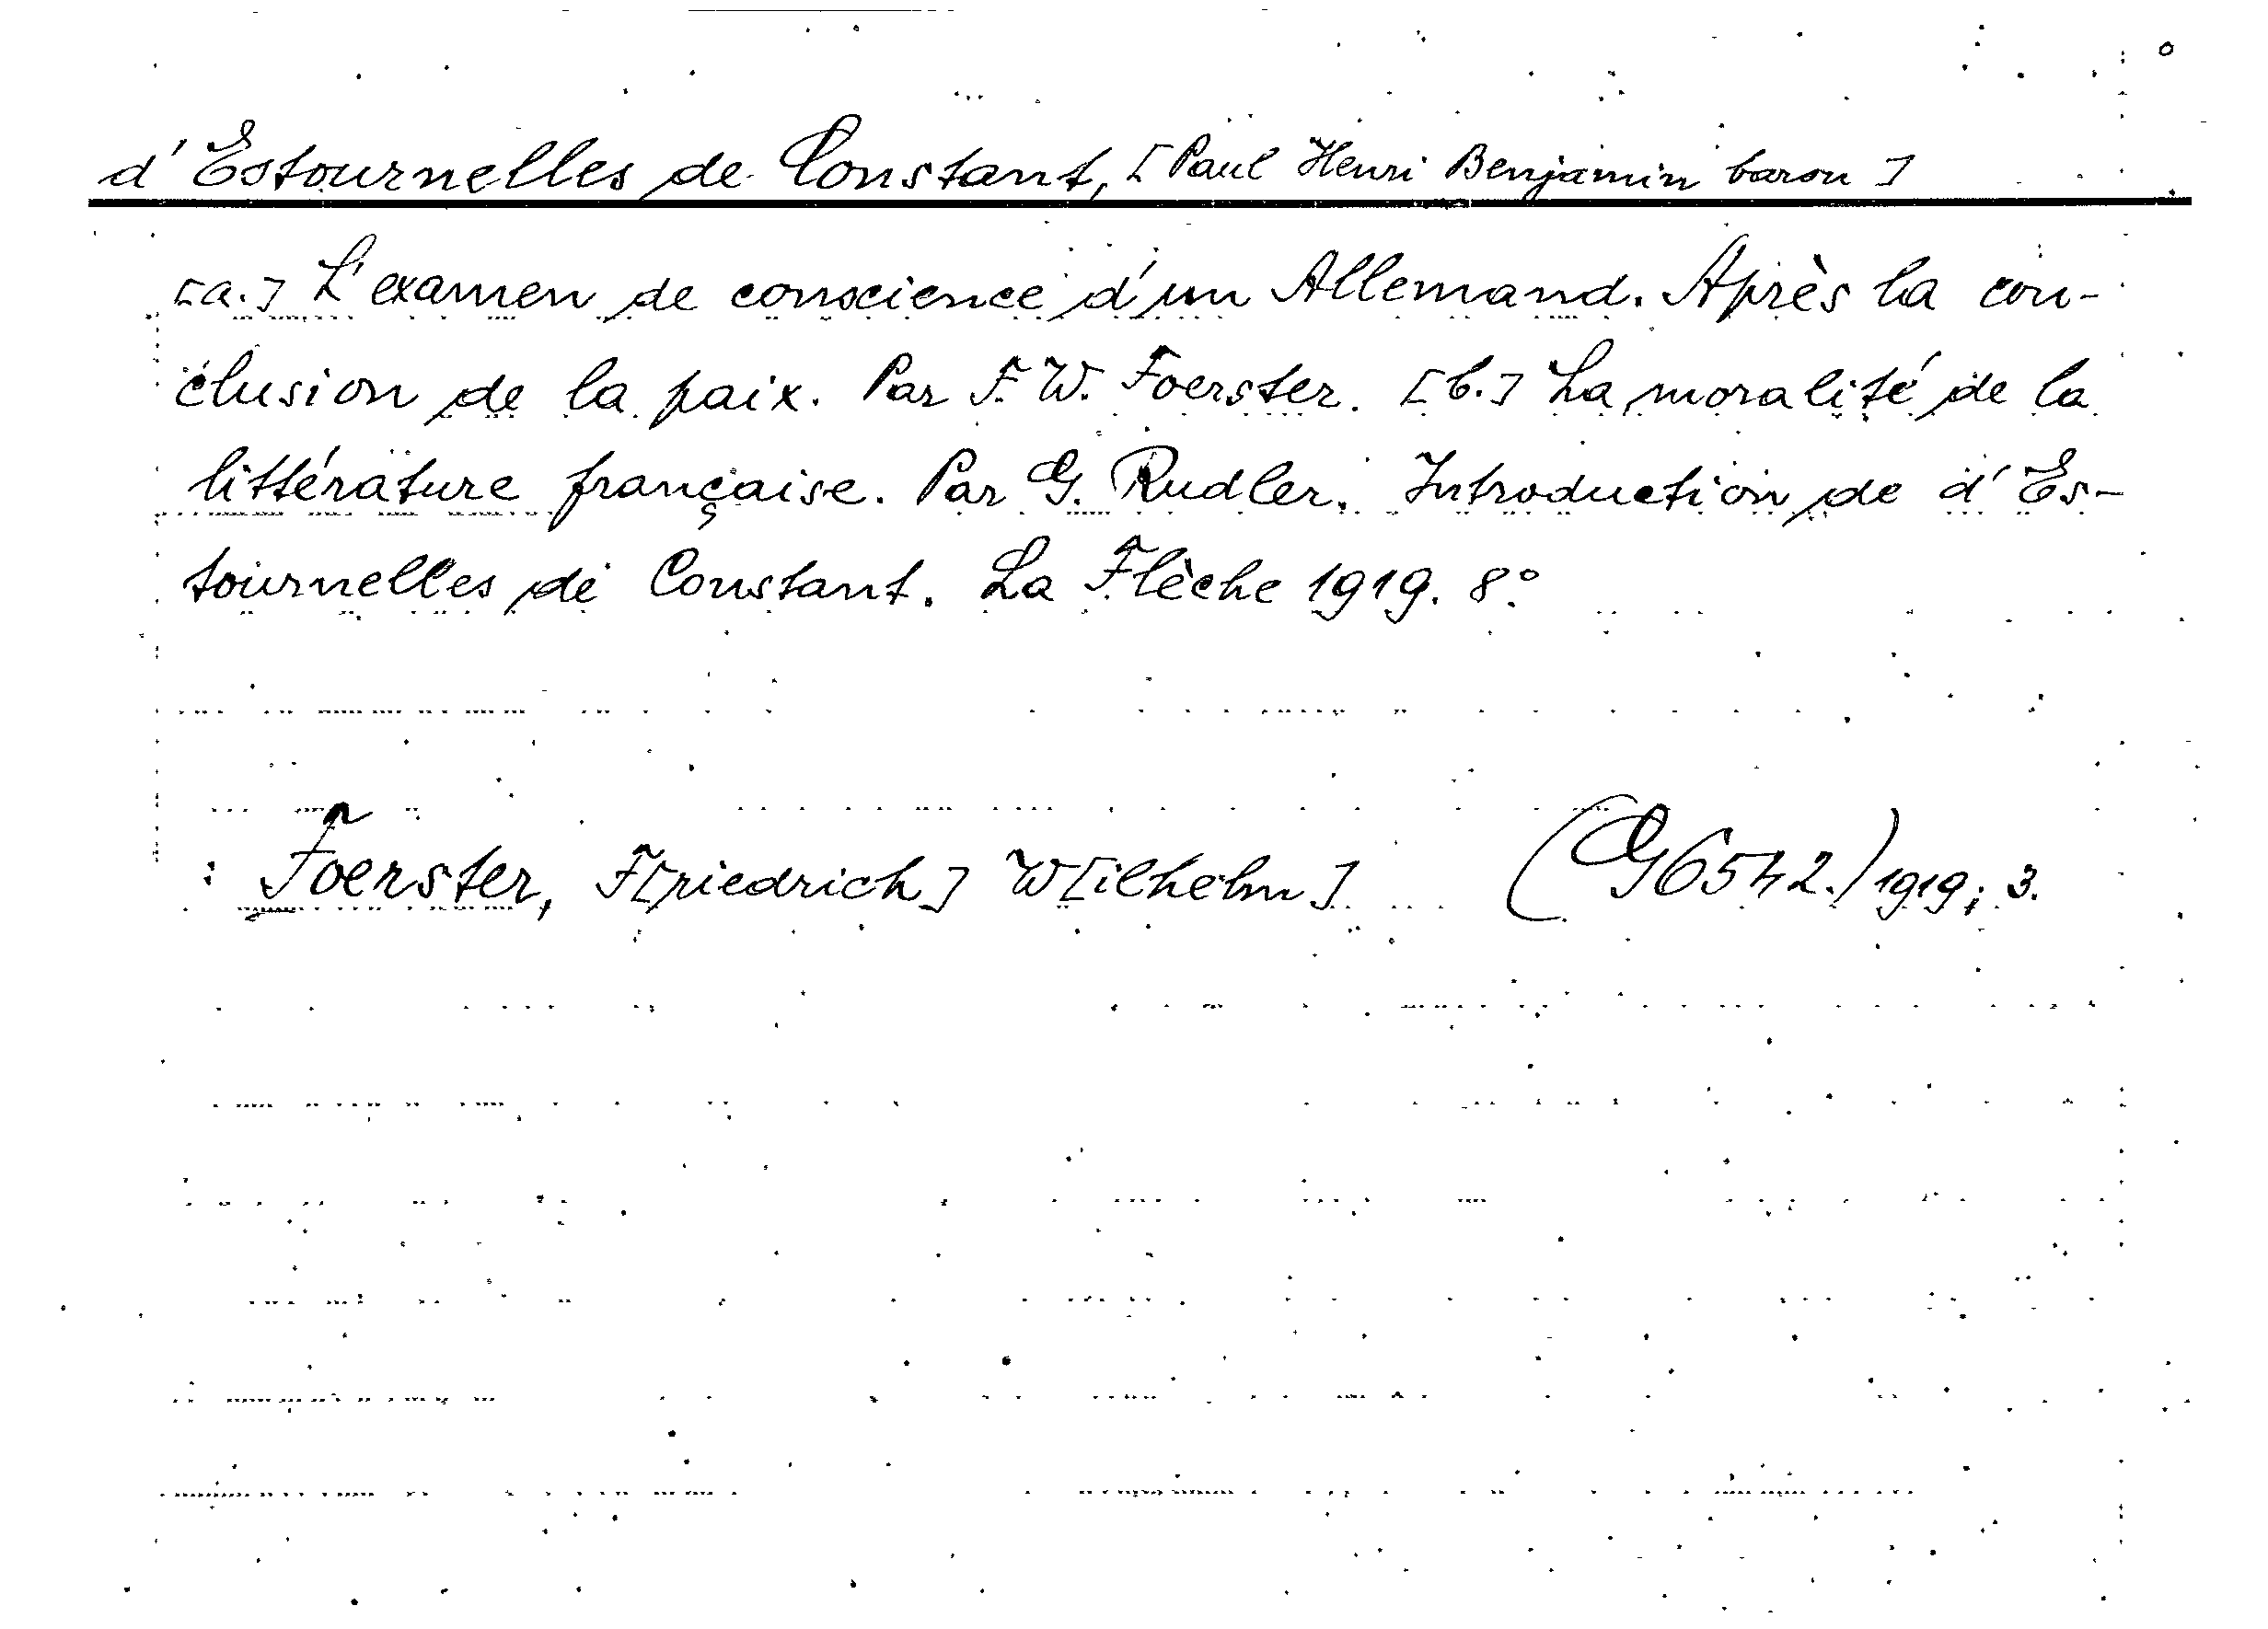 d'Estournelles de Constant, [Paul Henri Benjamin baron]
[a.] L'examen de conscience d'un Allemand. Après la con-
clusion de la paix. Par F. W. Foerster. [b.] La moralité de la
littérature française. Par G. Rudler. Introduction de d'Es-
tournelles de Constant. La Flèche 1919. 8°
: Foerster, F[riedrich] W[ilhelm] (G6542.) 1919; 3.